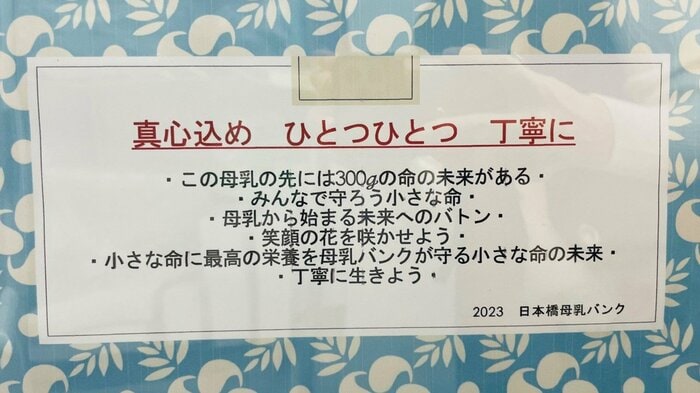 真心込め　ひとつひとつ　丁寧に
・この母乳の先には300gの命の未来がある・
・みんなで守ろう小さな命・
・母乳から始まる未来へのバトン・
・笑顔の花を咲かせよう・
・小さな命に最高の栄養を母乳バンクが守る小さな命の未来・
・丁寧に生きよう・
2023　日本橋母乳バンク